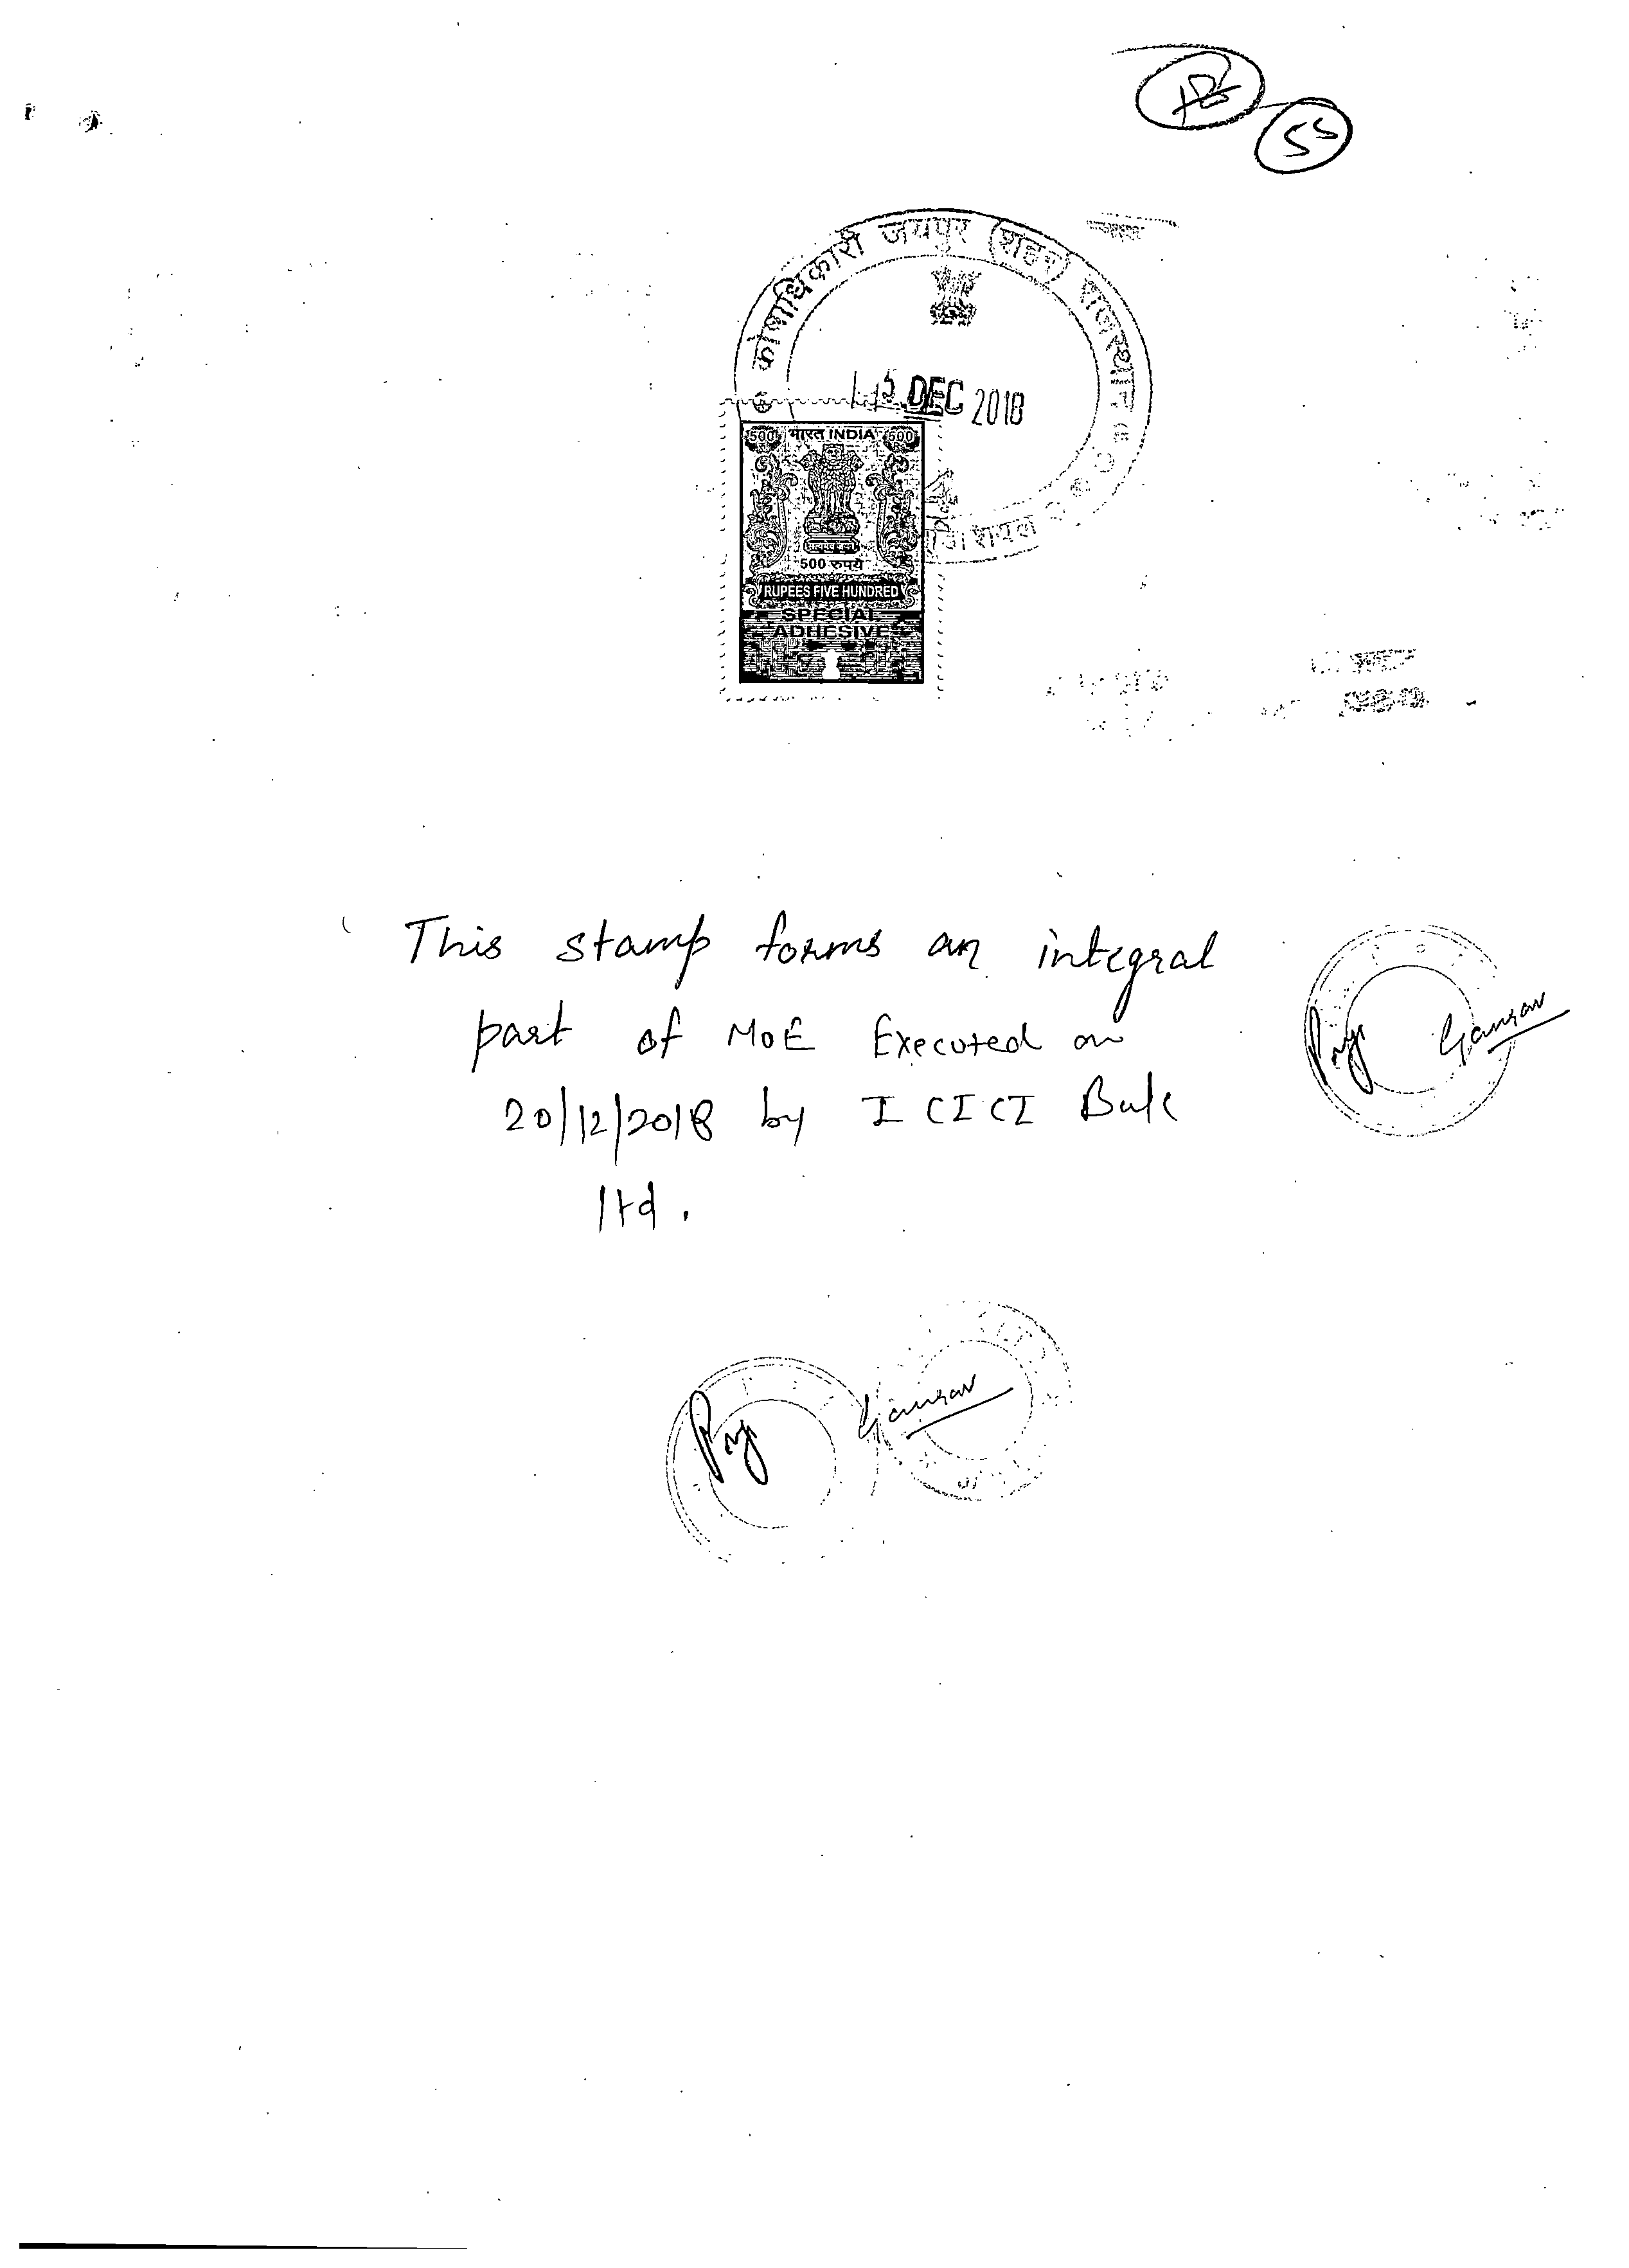 55
कोषाधिकारी जयपुर (शहर) राजस्थान
15 DEC 2018
500 भारत INDIA 500
500 रुपये
RUPEES FIVE HUNDRED
SPECIAL
ADHESIVE
This stamp forms an integral
part of MoE Executed on
20/12/2018 by ICICI Bank
ltd.
Gaurav
Gaurav